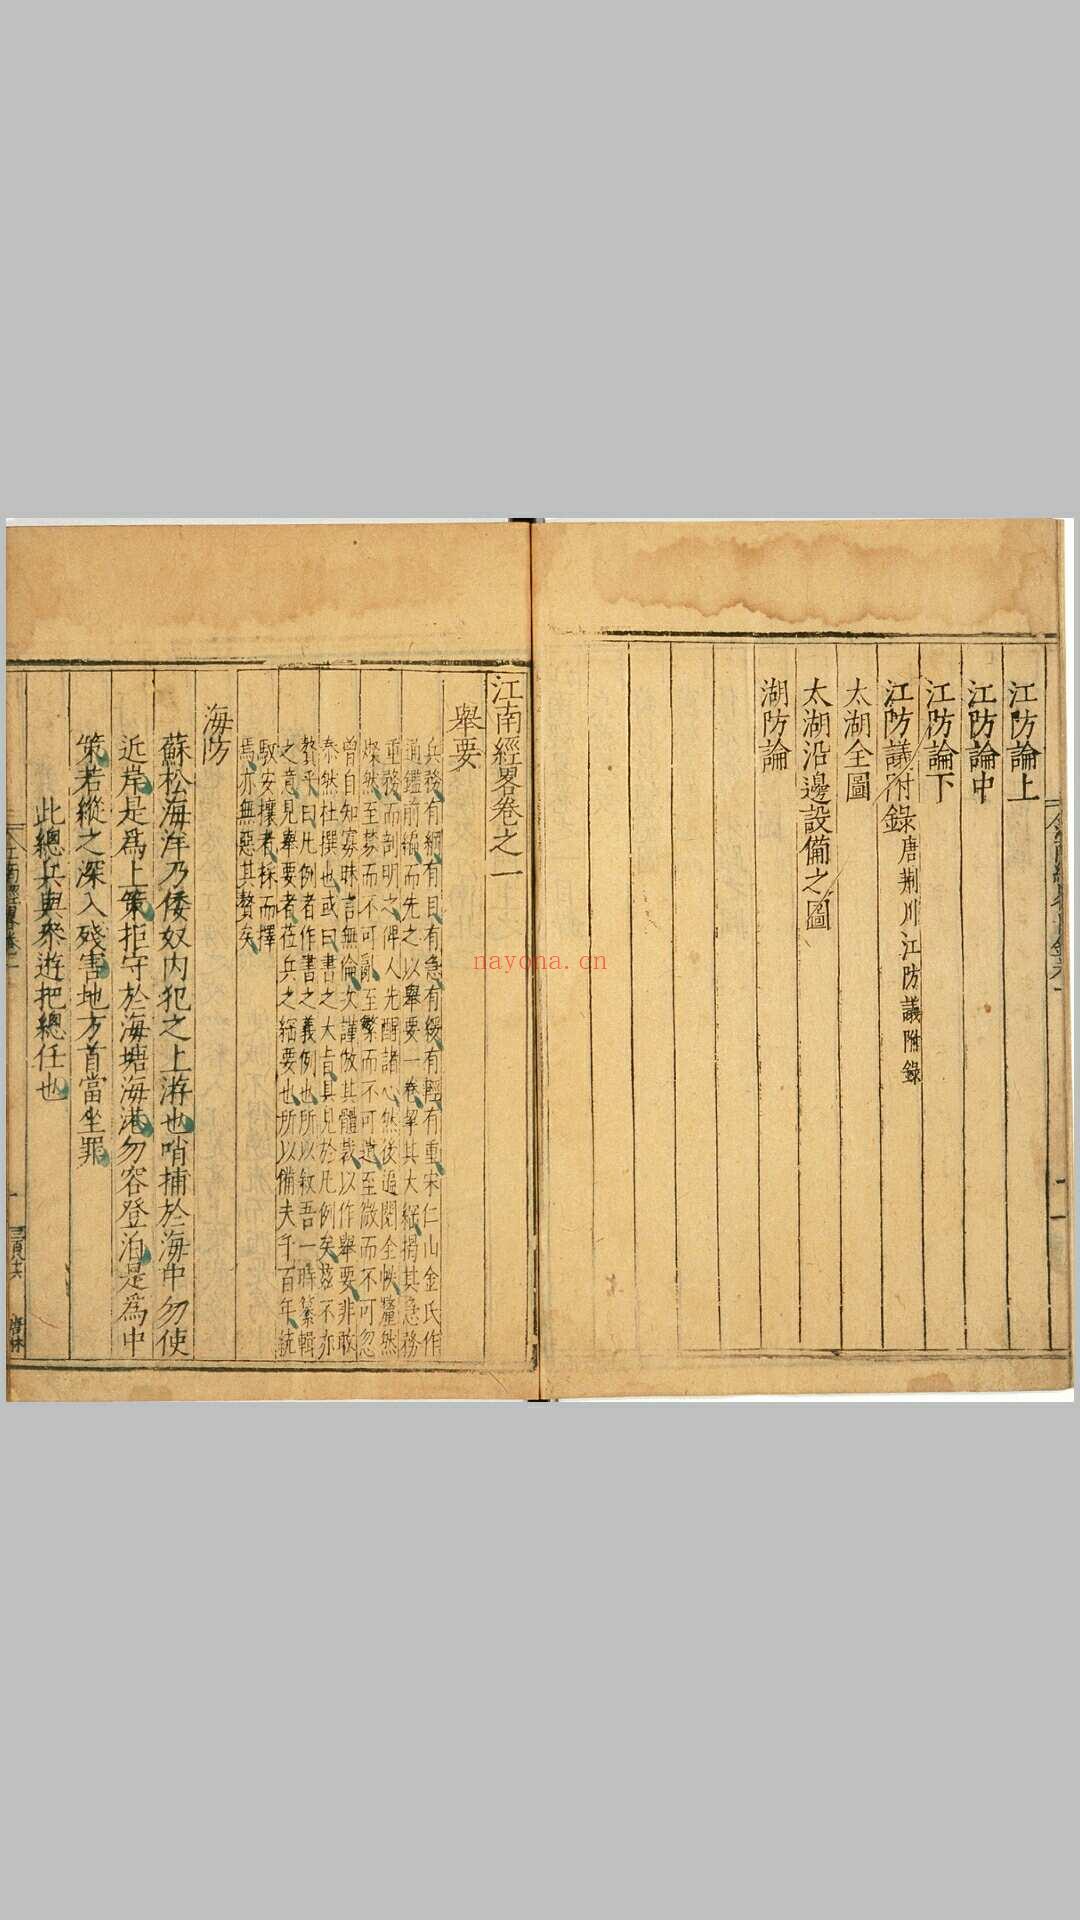 江防論上
江防論中
江防論下
江防議附錄唐荆川江防議附錄
太湖全圖
太湖沿邊設備之圖
湖防論
江南經畧卷之一
舉要
兵務有綱有目有急有緩有輕有重宋仁山金氏作
通鑑前編而先之以舉要一卷挈其大綱揭其急務
重務而剖明之俾人先醒諸心然後追閱全帙釐然
燦然至棼而不可亂至繁而不可遺至微而不可忽
曾自知寡昧言無倫次謹倣其體裁以作舉要非敢
杜撰也或曰書之大肯具見於凡例矣茲不亦
贅乎曰凡例者作書之義例也所以敘吾一時纂輯
之意見舉要者莅兵之綱要也所以備夫千百年統
馭安攘者採而擇
焉亦無惡其贅矣
海防
蘇松海洋乃倭奴内犯之上游也哨捕於海中勿使
近岸是爲上策拒守於海塘海港勿容登泊是爲中
策若縱之深入殘害地方首當坐罪
此總兵與叅遊把總任也
江南經畧卷一
nayona.cn